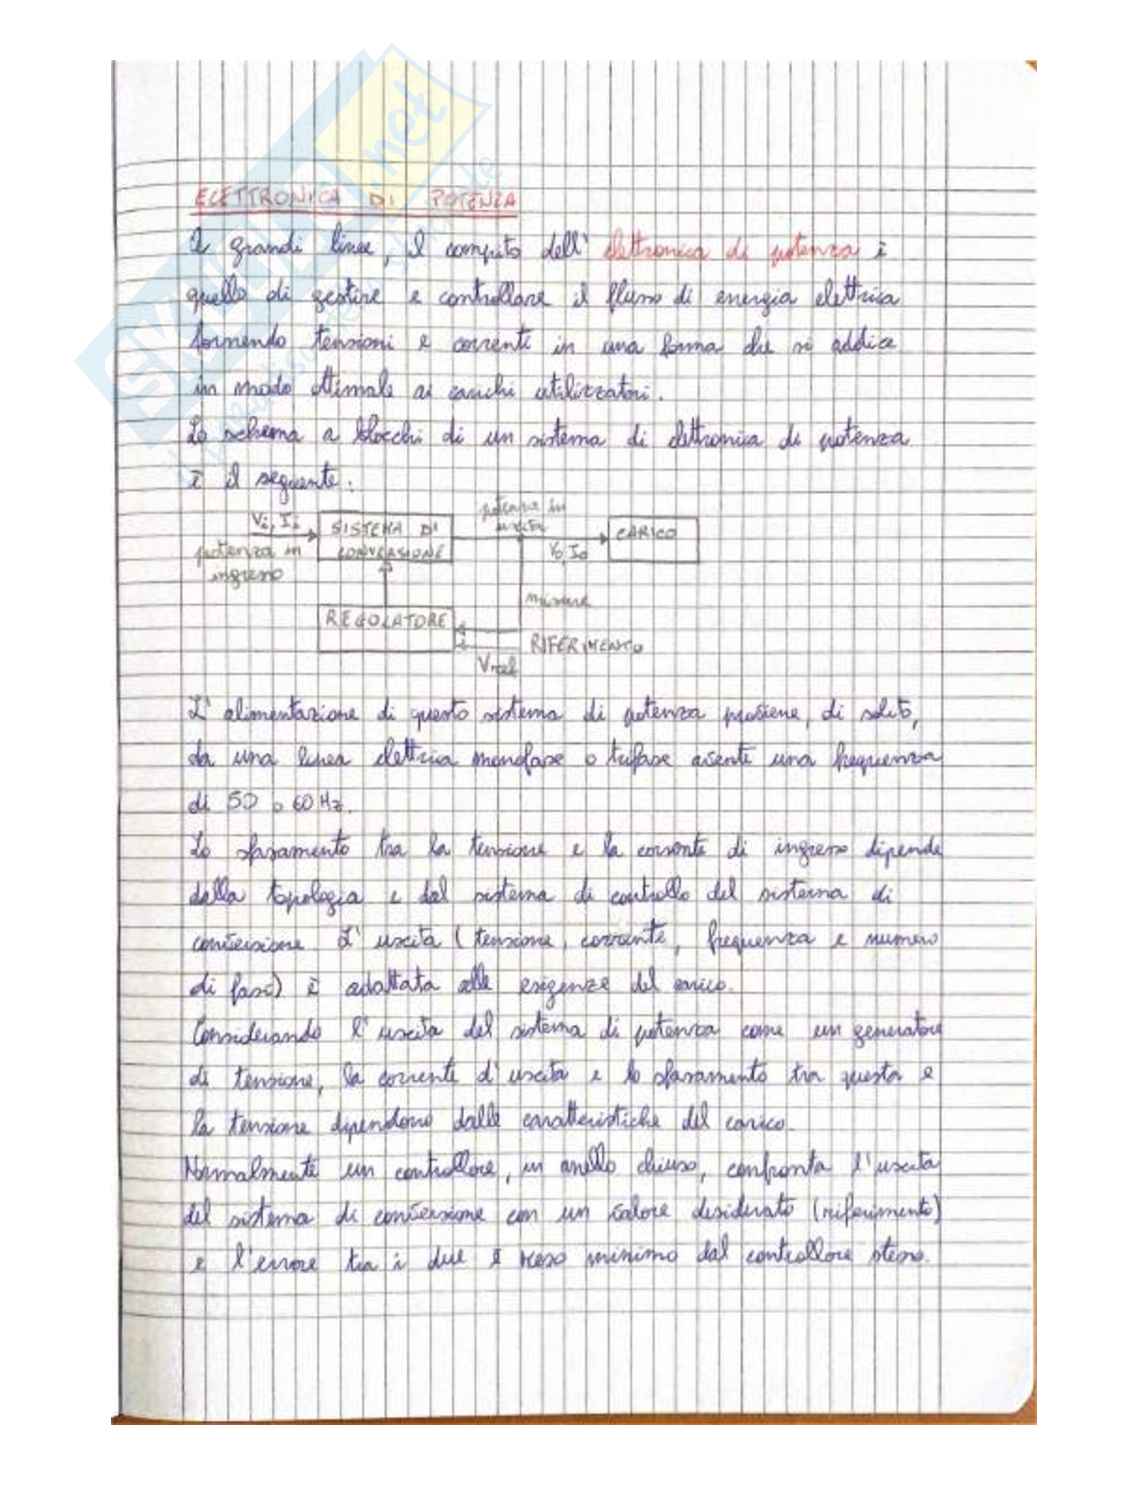 ELETTRONICA DI POTENZA
A grandi linee, il compito dell' elettronica di potenza è
quello di gestire e controllare il flusso di energia elettrica
fornendo tensioni e correnti in una forma che si addice
in modo ottimale ai carichi utilizzatori.
Lo schema a blocchi di un sistema di elettronica di potenza
è il seguente:
Vi, Ii
potenza in
ingresso
SISTEMA DI
CONVERSIONE
potenza in
uscita
Vo, Io
CARICO
misure
REGOLATORE
RIFERIMENTO
Vref
L' alimentazione di questo sistema di potenza proviene, di solito,
da una linea elettrica monofase o trifase avente una frequenza
di 50 o 60 Hz.
Lo sfasamento tra la tensione e la corrente di ingresso dipende
dalla topologia e dal sistema di controllo del sistema di
conversione. L' uscita (tensione, corrente, frequenza e numero
di fasi) è adattata alle esigenze del carico.
Considerando l' uscita del sistema di potenza come un generatore
di tensione, la corrente d' uscita e lo sfasamento tra questa e
la tensione dipendono dalle caratteristiche del carico.
Normalmente un controllore, in anello chiuso, confronta l' uscita
del sistema di conversione con un valore desiderato (riferimento)
e l'errore tra i due è reso minimo dal controllore stesso.
SKUOLA.net